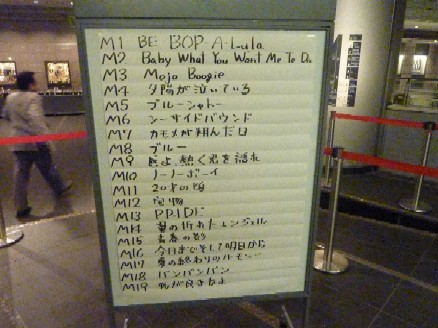 M1 BE BOP-A-Lula
M2 Baby What You Want Me To Do
M3 Mojo Boogie
M4 夕陽が泣いている
M5 ブルーシャトー
M6 シーサイドバウンド
M7 カモメが翔んだ日
M8 ブルー
M9 熱く君を語れ
M10 ノーノーボーイ
M11 20才の頃
M12 宝物
M13 PRIDE
M14 翼の折れたエンジェル
M15 青春の影
M16 今日までそして明日から
M17 夏の終わりのハーモニー
M18 バンバンバン
M19